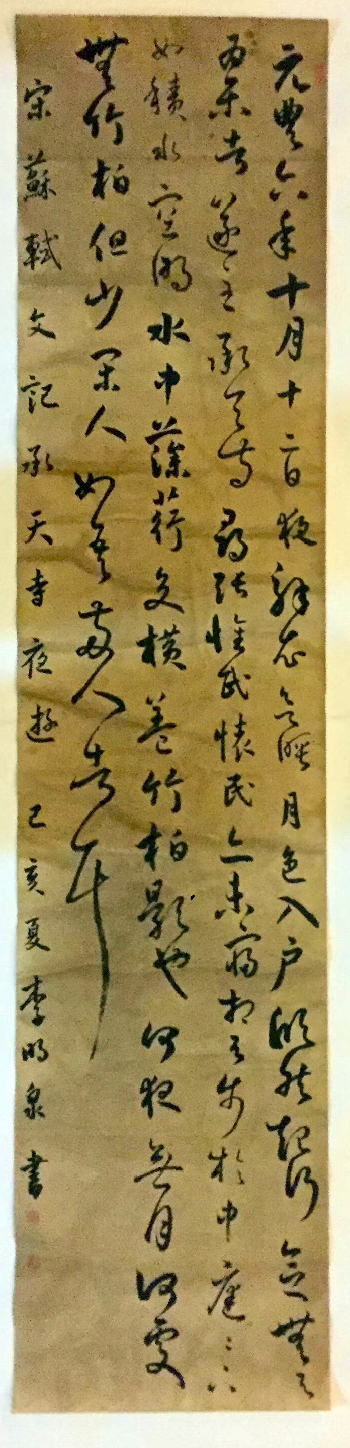 元豐六年十月十二日夜解衣欲睡月色入户欣然起行念無与
為樂者遂至承天寺尋張懷民懷民亦未寢相与步於中庭庭下
如積水空明水中藻荇交橫蓋竹柏影也何夜無月何處
無竹柏但少閑人如吾兩人者耳
宋蘇軾文記承天寺夜遊 己亥夏李明泉書